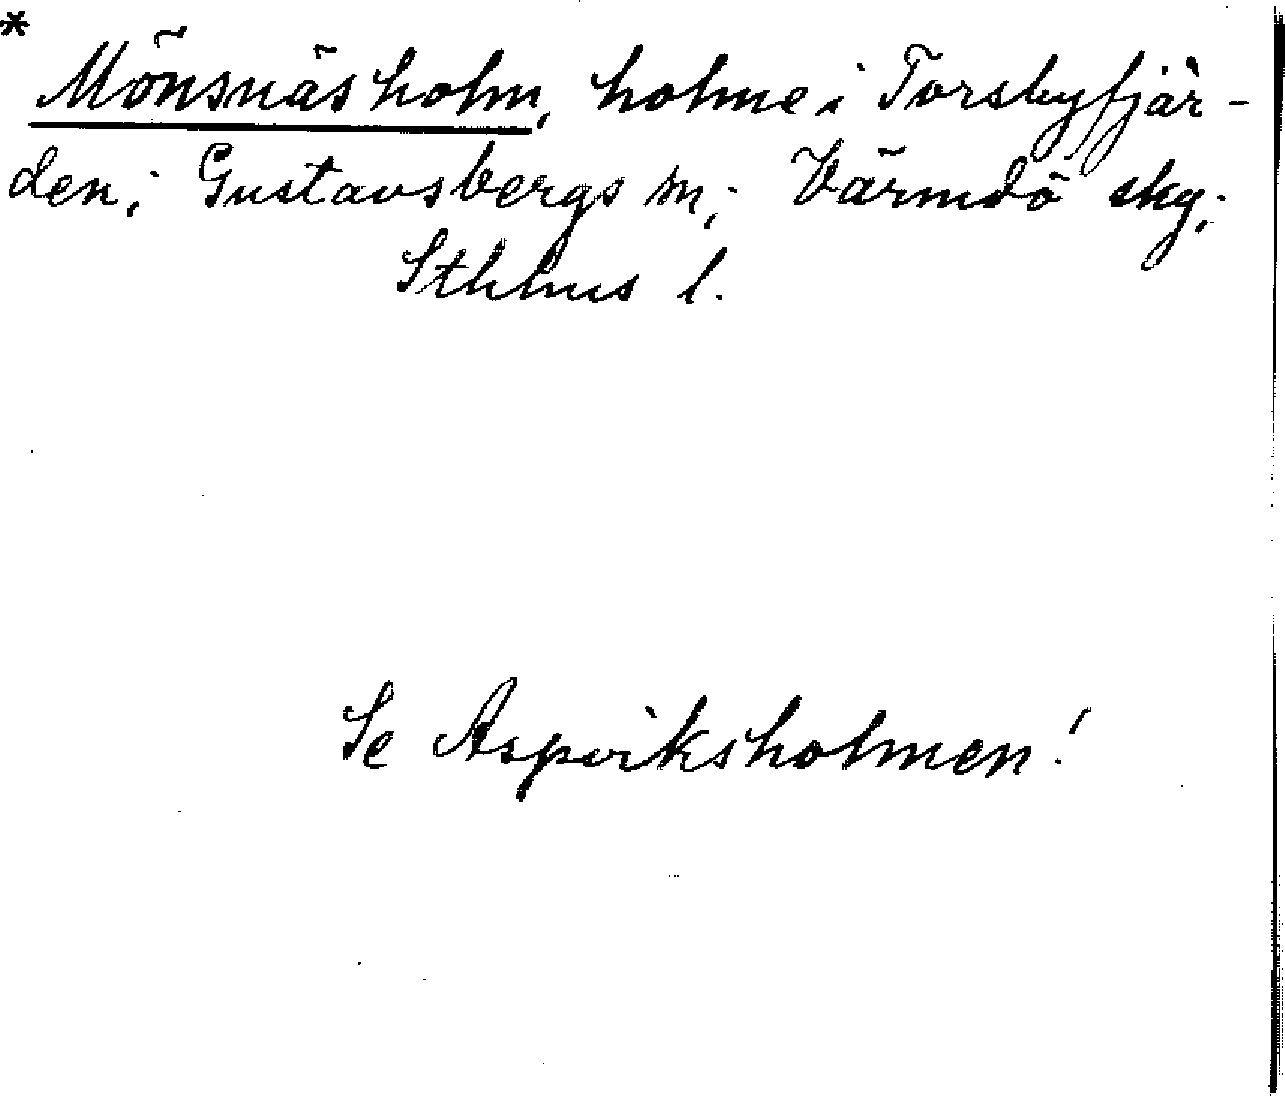 * Mönsnäsholm, holme i Torsbyfjär-
den; Gustavsbergs sn; Värmdö skg;
Sthlms l.
Se Aspviksholmen!